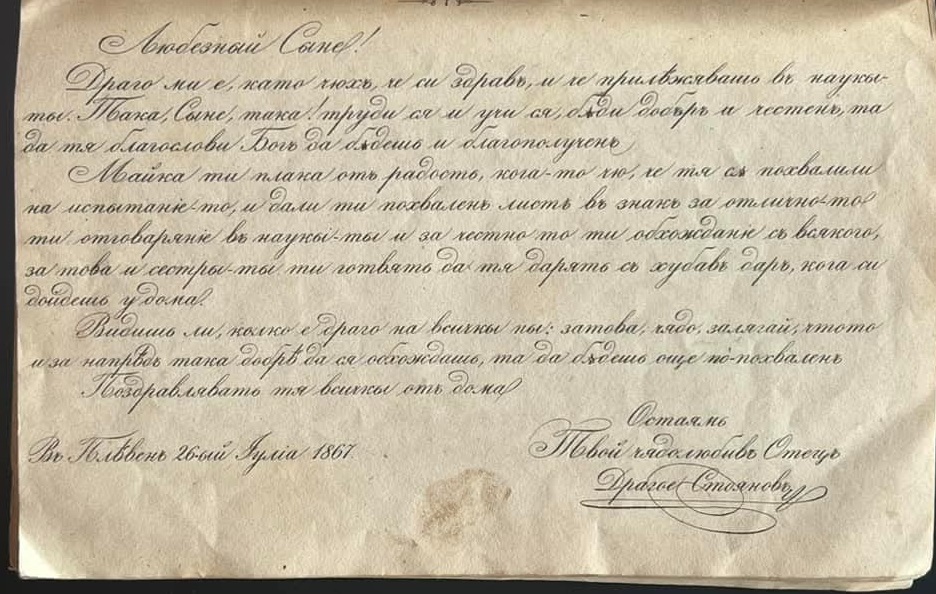 Любезный Сыне!
Драго ми е, като чюхъ, че си здравъ, и че прилѣжявашь въ наукы-
ты. Така, Сыне, така! труди ся и учи ся, бѫди добъръ и честенъ, та
да тя благослови Богъ да бѫдешь и благополученъ
Майка ти плака отъ радость, кога-то чю, че тя сѫ похвалили
на испытаніе-то, и дали ти похваленъ листъ въ знакъ за отлично-то
ти отговаряніе въ наукы-ты и за честно то ти обхожданіе съ всякого,
за това и сестры-ты ти готвятъ да тя дарятъ съ хубавъ даръ, кога си
дойдешь у дома.
Видишь ли, колко е драго на всичкы ны: затова, чядо, залягай, чтото
и за напрѣдъ така добрѣ да ся обхождашь, та да бѫдешь още по-похваленъ
Поздравляватъ тя всичкы отъ дома
Остаямь
Въ Плѣвенъ 26-ый Іуліа 1867.
Твой чядолюбивъ Отецъ
Драгое Стояновъ